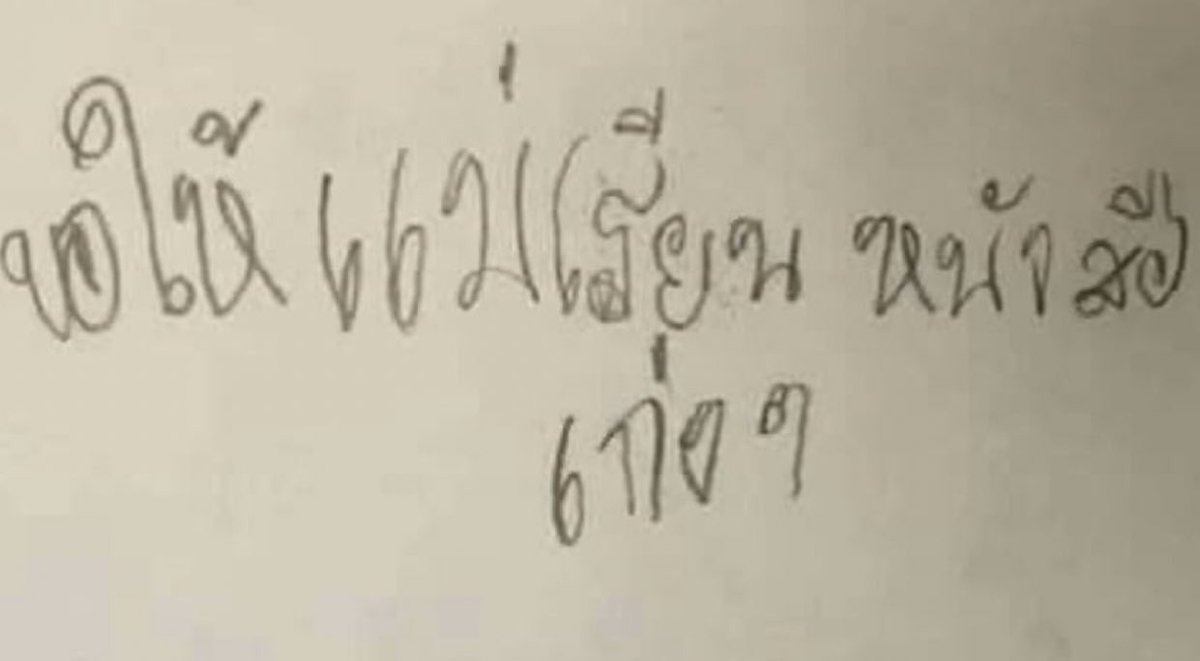 ขอให้แม่เรียนหน้งสือ
เก่งๆ